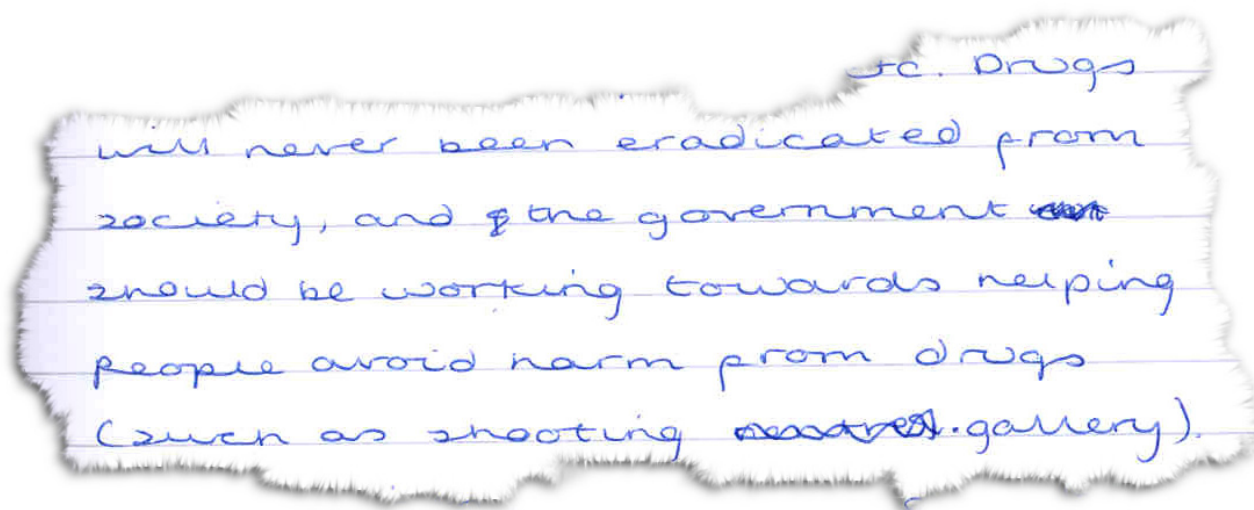 etc. Drugs
will never been eradicated from
society, and the government
should be working towards helping
people avoid harm from drugs
(such as shooting gallery).